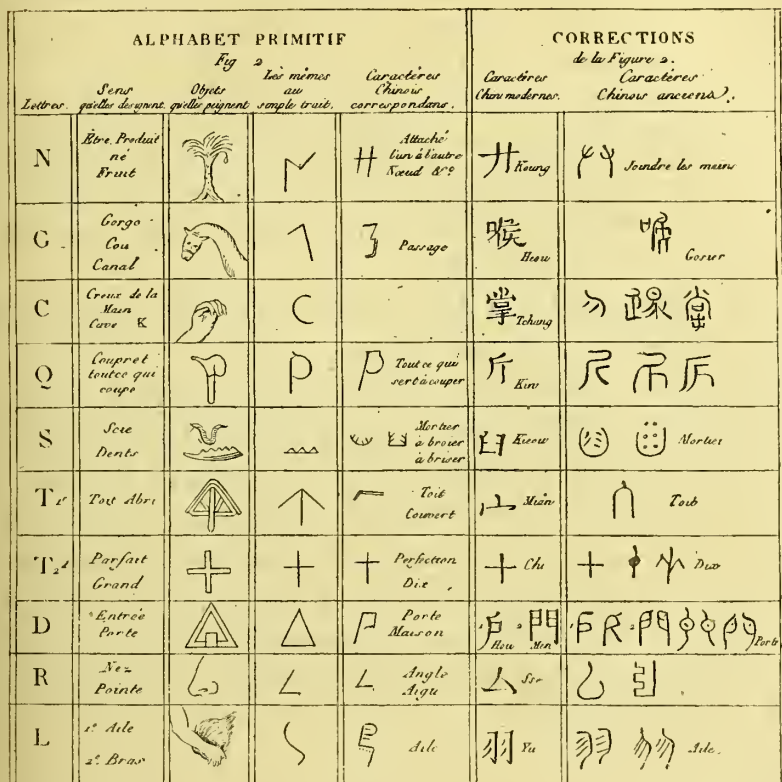 ALPHABET PRIMITIF
Fig 2
CORRECTIONS
de la Figure 2.
Lettres.
Sens
qu'elles designent.
Objets
qu'elles peignent
Les mêmes
au
simple trait.
Caractères
Chinois
correspondans.
Caractères
Chin. modernes.
Caractères
Chinois anciens.
N
Être Produit
né
Fruit
Attaché
l'un à l'autre
Nœud &c.
廾 Koung
Joindre les mains
G
Gorge
Cou
Canal
Passage
喉 Heou
Gosier
C
Creux de la
Main
Cave K
掌 Tchang
Q
Coupret
tout ce qui
coupe
Tout ce qui
sert à couper
斤 Kin
S
Scie
Dents
Mortier
à broier
à briser
臼 Kieou
Mortier
T 1r
Toit Abri
Toit
Couvert
宀 Mien
Toit
T 2d
Parfait
Grand
十 Perfection
Dix
十 Chi
十 Dix
D
Entrée
Porte
Porte
Maison
戶 Hou 門 Men
Porte
R
Nez
Pointe
Angle
Aigu
亼 Sse
L
1º Aile
2º Bras
Aile
羽 Yu
Aile